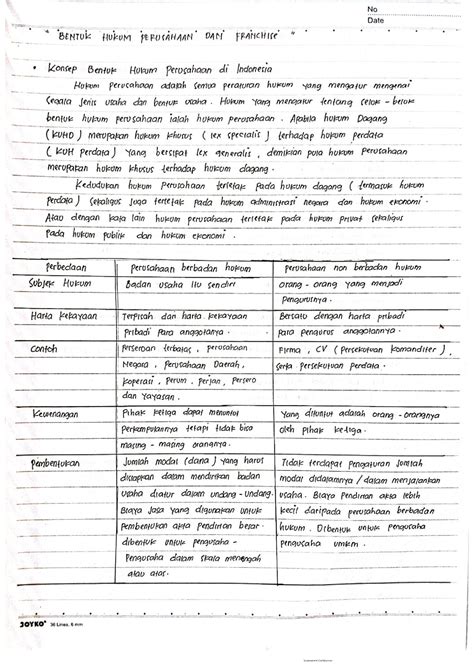 No
Date
" BENTUK HUKUM PERUSAHAAN DAN FRANCHISE "
• Konsep Bentuk Hukum Perusahaan di Indonesia
Hukum perusahaan adalah semua peraturan hukum yang mengatur mengenai
segala jenis usaha dan bentuk usaha. Hukum yang mengatur tentang seluk - beluk
bentuk hukum perusahaan ialah hukum perusahaan. Apabila Hukum Dagang
(KUHD) merupakan hukum khusus (lex specialis) terhadap hukum perdata
(KUH perdata) yang bersipat lex generalis, demikian pula hukum perusahaan
merupakan hukum khusus terhadap hukum dagang.
Kedudukan hukum perusahaan terletak pada hukum dagang (termasuk hukum
perdata) sekaligus juga terletak pada hukum administrasi negara dan hukum ekonomi.
Atau dengan kata lain hukum perusahaan terletak pada hukum privat sekaligus
pada hukum publik dan hukum ekonomi.
Perbedaan | perusahaan berbadan hukum | perusahaan non berbadan hukum
Subjek Hukum | Badan usaha itu sendiri | orang - orang yang menjadi
pengurusnya.
Harta kekayaan | Terpisah dari harta kekayaan | Bersatu dengan harta pribadi
pribadi para anggotanya. | para pengurus anggotanya.
Contoh | Perseroan terbatas, perusahaan | Firma, CV (Persekutuan komanditer),
Negara, perusahaan Daerah, | serta persekutuan perdata.
koperasi, perum, perjan, persero
dan Yayasan.
Kewenangan | Pihak ketiga dapat menuntut | Yang dituntut adalah orang - orangnya
perkumpulannya tetapi tidak bisa | oleh pihak ketiga.
masing - masing orangnya.
Pembentukan | Jumlah modal (dana) yang harus | Tidak terdapat pengaturan jumlah
disiapkan dalam mendirikan badan | modal didalamnya / dalam menjalankan
usaha diatur dalam undang - undang. | usaha. Biaya pendirian akta lebih
Biaya jasa yang digunakan untuk | kecil daripada perusahaan berbadan
pembentukan akta pendirian besar. | hukum. Dibentuk untuk pengusaha
dibentuk untuk pengusaha - | pengusaha umkm.
pengusaha dalam skala menengah
atau atas.
JOYKO 36 Lines, 6 mm